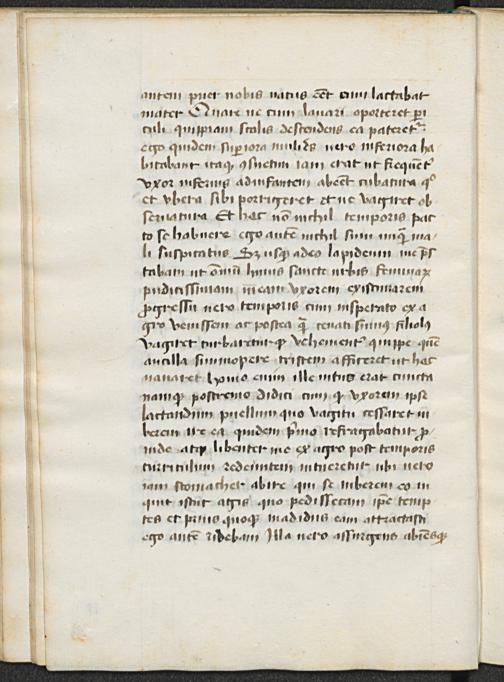 antem puer nobis natus eēt eum lactabat
mater Quare ne cum lauari oporteret pi
culi quippiam scalis descendens ea pateretᵘʳ
ego quidem supiora mulies uero inferiora ha
bitabant itaqꝫ ꝯsuetum iam erat ut frequēt
vxor inferius ad infantem abeēt cubatura qº
et vbera sibi porrigeret et ne vagiret ob
seruatura Et hac nō nichil temporis pac
to se habuere ego autē nichil sum unq̄ ma
li suspicatus Sꝫ usqꝫ adeo lapideum me p̄s
tabam ut om̄i huius sancte urbis feminaꝝ
pudicissimam meam vxorem existimarem
ꝓgressu uero temporis cum insperato ex a
gro venissem ac postea q̄ cenati sumus filiolꝰ
vagiret turbareturqꝫ vehementᵉʳ quippe quē
ancilla summopere tristem afficeret ut hac
nauaret homo enim ille intus erat cuncta
namqꝫ postremo didici cum qꝫ vxorem ipse
lactandum puellum quo vagitu cessaret iu
berem ire ea quidem p̄mo refragabatur ꝓ
inde atqꝫ libenter me ex agro post temporis
curriculum redeuntem intueretur ubi uero
iam stomacher abire qui se iuberem eo in
quit istuc agis quo pedissecam ip̄e temp
tes et prius quoqꝫ madidus eam attractasti
ego autē ridebam Illa uero assurgens abiensqꝫ